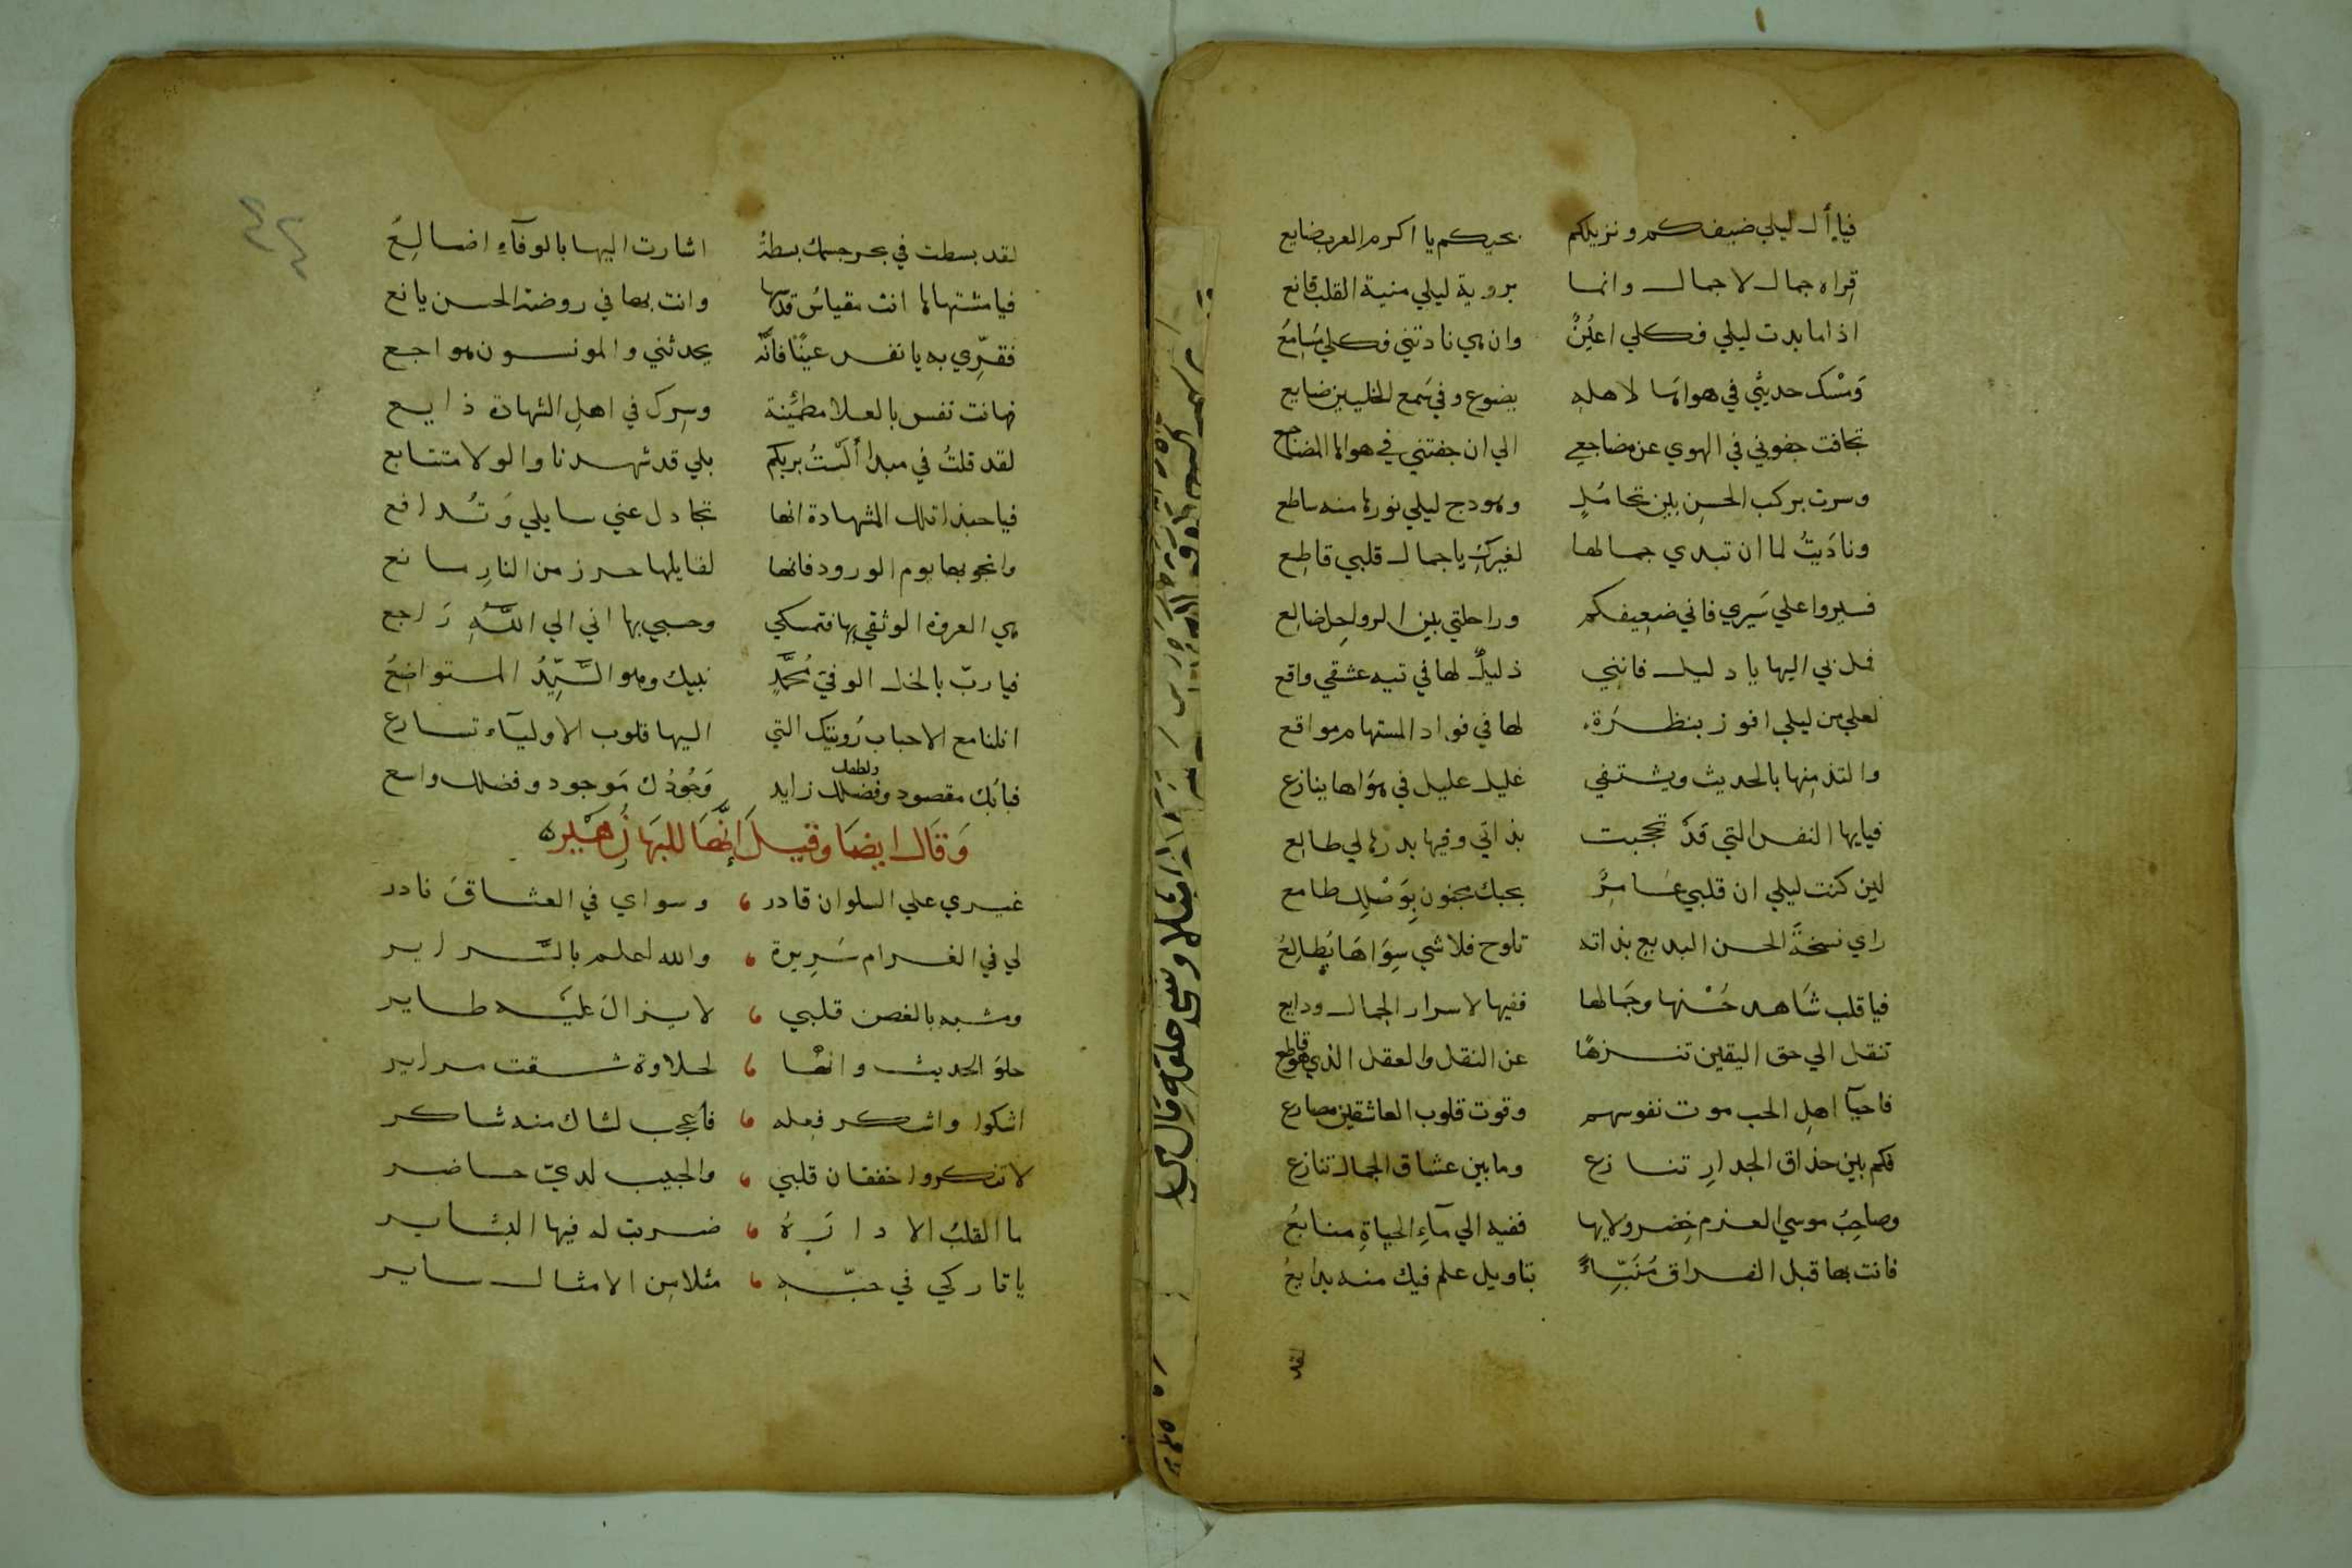 فيا أل ليلي ضيفكم ونزيلكم بحيكم يا اكرم العرب ضايع
قراه جمال لا جمال وانما بروية ليلي منية القلب قانع
اذا ما بدت ليلي فكلي اعينٌ وان هي نادتني فكلي مسامعُ
ومسك حديثي في هواها لاهله يضوع وفي سمع الخليين ضايع
تجافت جفوني في الهوي عن مضاجعي الي ان جفتني في هواها المضاجع
وسرت بركب الحسن بين محامل وهودج ليلي نورها منه ساطع
وناديتُ لما ان تبدي جمالها لغيركِ يا جمال قلبي قاطع
فسيروا علي سيري فاني ضعيفكم وراحلتي بين الرواحل ضالع
فمل بي اليها يا دليل فانني ذليلٌ لها في تيه عشقي واقع
لعلي من ليلي افوز بنظرة لها في فواد المستهام مواقع
والتذ منها بالحديث ويشتفي غليل عليل في هواها ينازع
فيايها النفس التي قد تحجبت بذاتي وفيها بدرها لي طالع
لين كنت ليلي ان قلبي عامرٌ بحبك مجنون بوصلك طامع
راي نسخة الحسن البديع بذاته تلوح فلا شي سواها يُطالعُ
فيا قلب شاهد حُسْنها وجمالها ففيها لاسرار الجمال ودايع
تنقل الي حق اليقين تنزهًا عن النقل والعقل الذي هو قاطع
فاحيآ اهل الحب موت نفوسهم وقوت قلوب العاشقين مصارع
فكم بين حذاق الجدار تنازع وما بين عشاق الجمال تنازع
وصاحِبُ موسي العزم خضر ولايها ففيه الي مآء الحياة منابعُ
فانت بها قبل الفراق مُنَبّاءً بتاويل علم فيك منه بدايعُ
لقد
لقد بسطت في بحر جسمك بسطةُ اشارت اليها بالوفآءِ اضالعُ
فيا مشتهاها انت مقياس قدسها وانت بها في روضة الحسن يانع
فقرّي به يا نفس عينًا فانّه يحدثني والمونسون هواجع
فهانت نفس بالعلا مطمئنة وسرك في اهل الشهادة ذايع
لقد قلتُ في مبدا ألستُ بربكم بلي قد شهدنا والولا متتابع
فيا حبذا تلك الشهادة انها تجادل عني سايلي وتُدافع
وانجو بها يوم الورود فانها لقايلها حرز من النار مانع
هي العروة الوثقي بها فتمسكي وحسبي بها اني الي اللّه راجع
فيا ربّ بالخل الوفيّ مُحمَّدٍ نبيك وهو السَّيِّدُ المتواضعُ
انلنا مع الاحباب رُويتك التي اليها قلوب الاوليآء تسارع
فبابُك مقصود وفضلك زايد وَجُودُك مَوجود وفضلك واسع
ولطفك
وَقَالَ ايضَا وقيل انّها للبها زُهَير
غيري علي السلوان قادر وسواي في العشاق نادر
لي في الغرام سَريرة والله اعلم بالسَّراير
ومشبه بالغصن قلبي لا يزال عليه طاير
حلو الحديث وانها لحلاوة شقت مراير
اشكوا واشكر فعله فاعجب لشاك منه شاكر
لا تنكروا خفقان قلبي والحبيب لديّ حاضر
ما القلبُ الا دارهُ ضربت له فيها البشاير
يا تاركي في حبّه مثلا من الامثال ساير